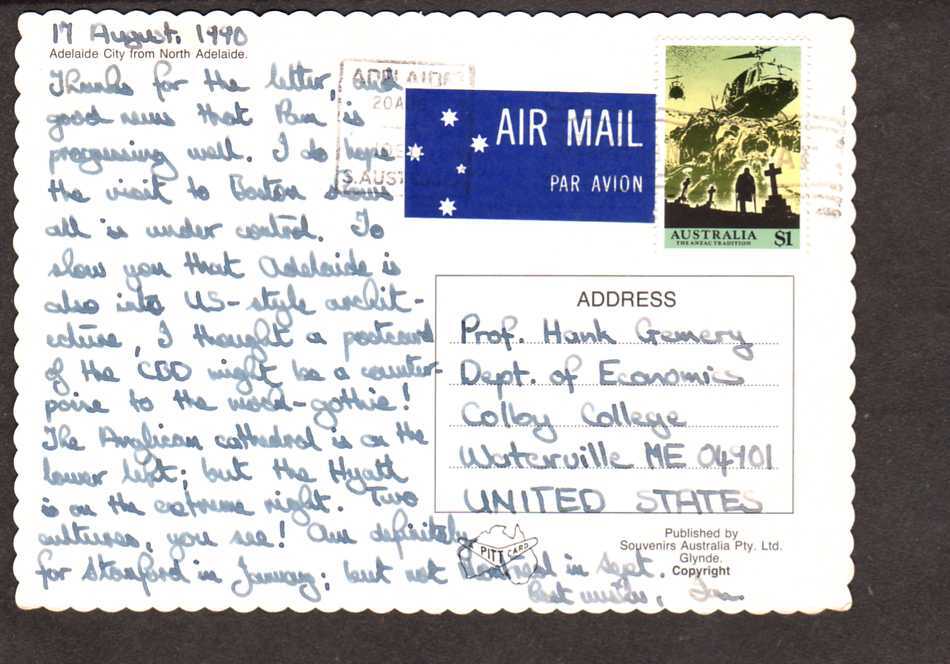 17 August, 1990
Adelaide City from North Adelaide.
Thanks for the letter, and
good news that Pam is
progressing well. I do hope
the visit to Boston shows
all is under control. To
show you that Adelaide is
also into US-style archit-
ecture, I thought a postcard
of the CBD might be a counter-
poise to the wood-gothic!
The Anglican cathedral is on the
lower left; but the Hyatt
is on the extreme right. Two
cultures, you see! Am definitely
for Stanford in January; but not Montreal in Sept.
Best wishes, Ian.
ADELAIDE
20A
S.AUST
AIR MAIL
PAR AVION
AUSTRALIA
THE ANZAC TRADITION
$1
ADDRESS
Prof. Hank Gemery
Dept. of Economics
Colby College
Waterville ME 04901
UNITED STATES
PITT CARD
Published by
Souvenirs Australia Pty. Ltd.
Glynde.
Copyright